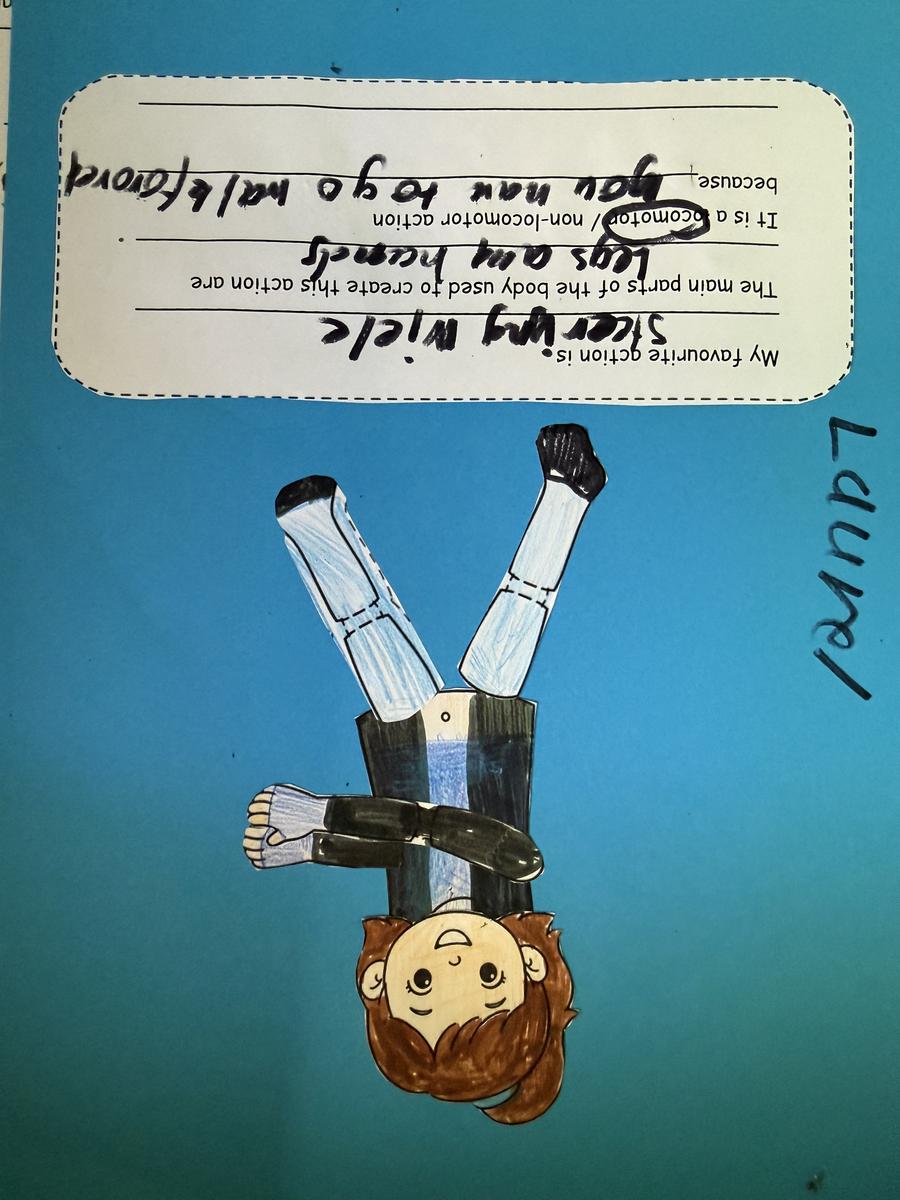 My favourite action is: Steering wiele
The main parts of the body used to create this action are
Legs any hands
It is a locomotor / non-locomotor action
because you hav to go walk farord
Laura